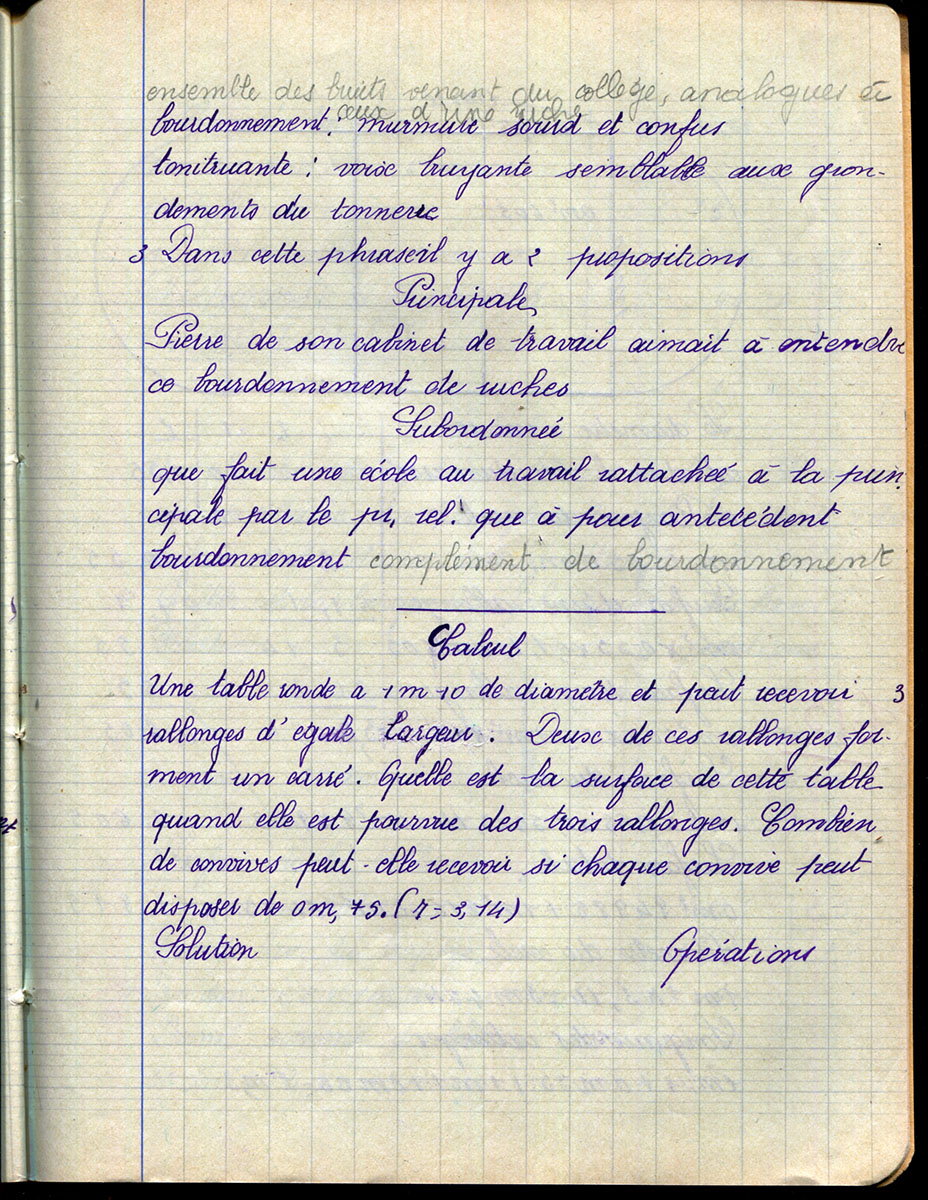 ensemble des bruits venant du collège, analogues à
ceux d'une ruche
bourdonnement : murmure sourd et confus
tonitruante : voix bruyante semblable aux gron-
dements du tonnerre
3 Dans cette phrase il y a 2 propositions
Principale
Pierre de son cabinet de travail aimait à entendre
ce bourdonnement de ruches
Subordonnée
que fait une école au travail rattacheé à la prin.
cipale par le pr. rel. que à pour antécédent
bourdonnement complément de bourdonnement
Calcul
Une table ronde a 1 m 10 de diamètre et peut recevoir 3
rallonges d'égale largeur. Deux de ces rallonges for-
ment un carré. Quelle est la surface de cette table
quand elle est pourvue des trois rallonges. Combien
de convives peut-elle recevoir si chaque convive peut
disposer de 0 m, 75. ( = 3,14)
Solution Opérations